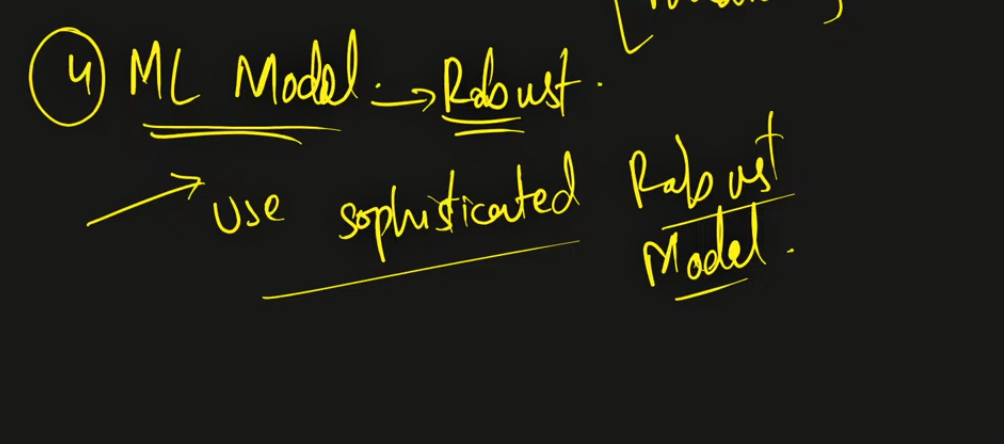 ④ ML Model. → Robust.
→ Use sophisticated Robust
Model.